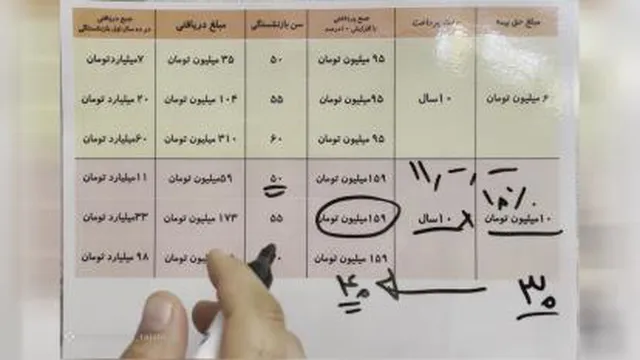 مبلغ حق بیمه مدت پرداخت جمع پرداختی با افزایش ۱۰ درصد سن بازنشستگی مبلغ دریافتی جمع دریافتی در ده سال اول بازنشستگی
۹۵ میلیون تومان ۵۰ ۳۵ میلیون تومان ۷میلیاردتومان
۶ میلیون تومان ۱۰سال ۹۵میلیون تومان ۵۵ ۱۰۴ میلیون تومان ۲۰ میلیارد تومان
۹۵ میلیون تومان ۶۰ ۳۱۰ میلیون تومان ۶۰میلیارد تومان
۱۵۹میلیون تومان ۵۰ ۵۹میلیون تومان ۱۱میلیارد تومان
۱۰٪
۱۰میلیون تومان ۱۰سال ۱۵۹میلیون تومان ۵۵ ۱۷۳ میلیون تومان ۳۳میلیارد تومان
۱۵۹ میلیون تومان میلیون تومان ۹۸ میلیارد تومان
۳۰ ۴۰